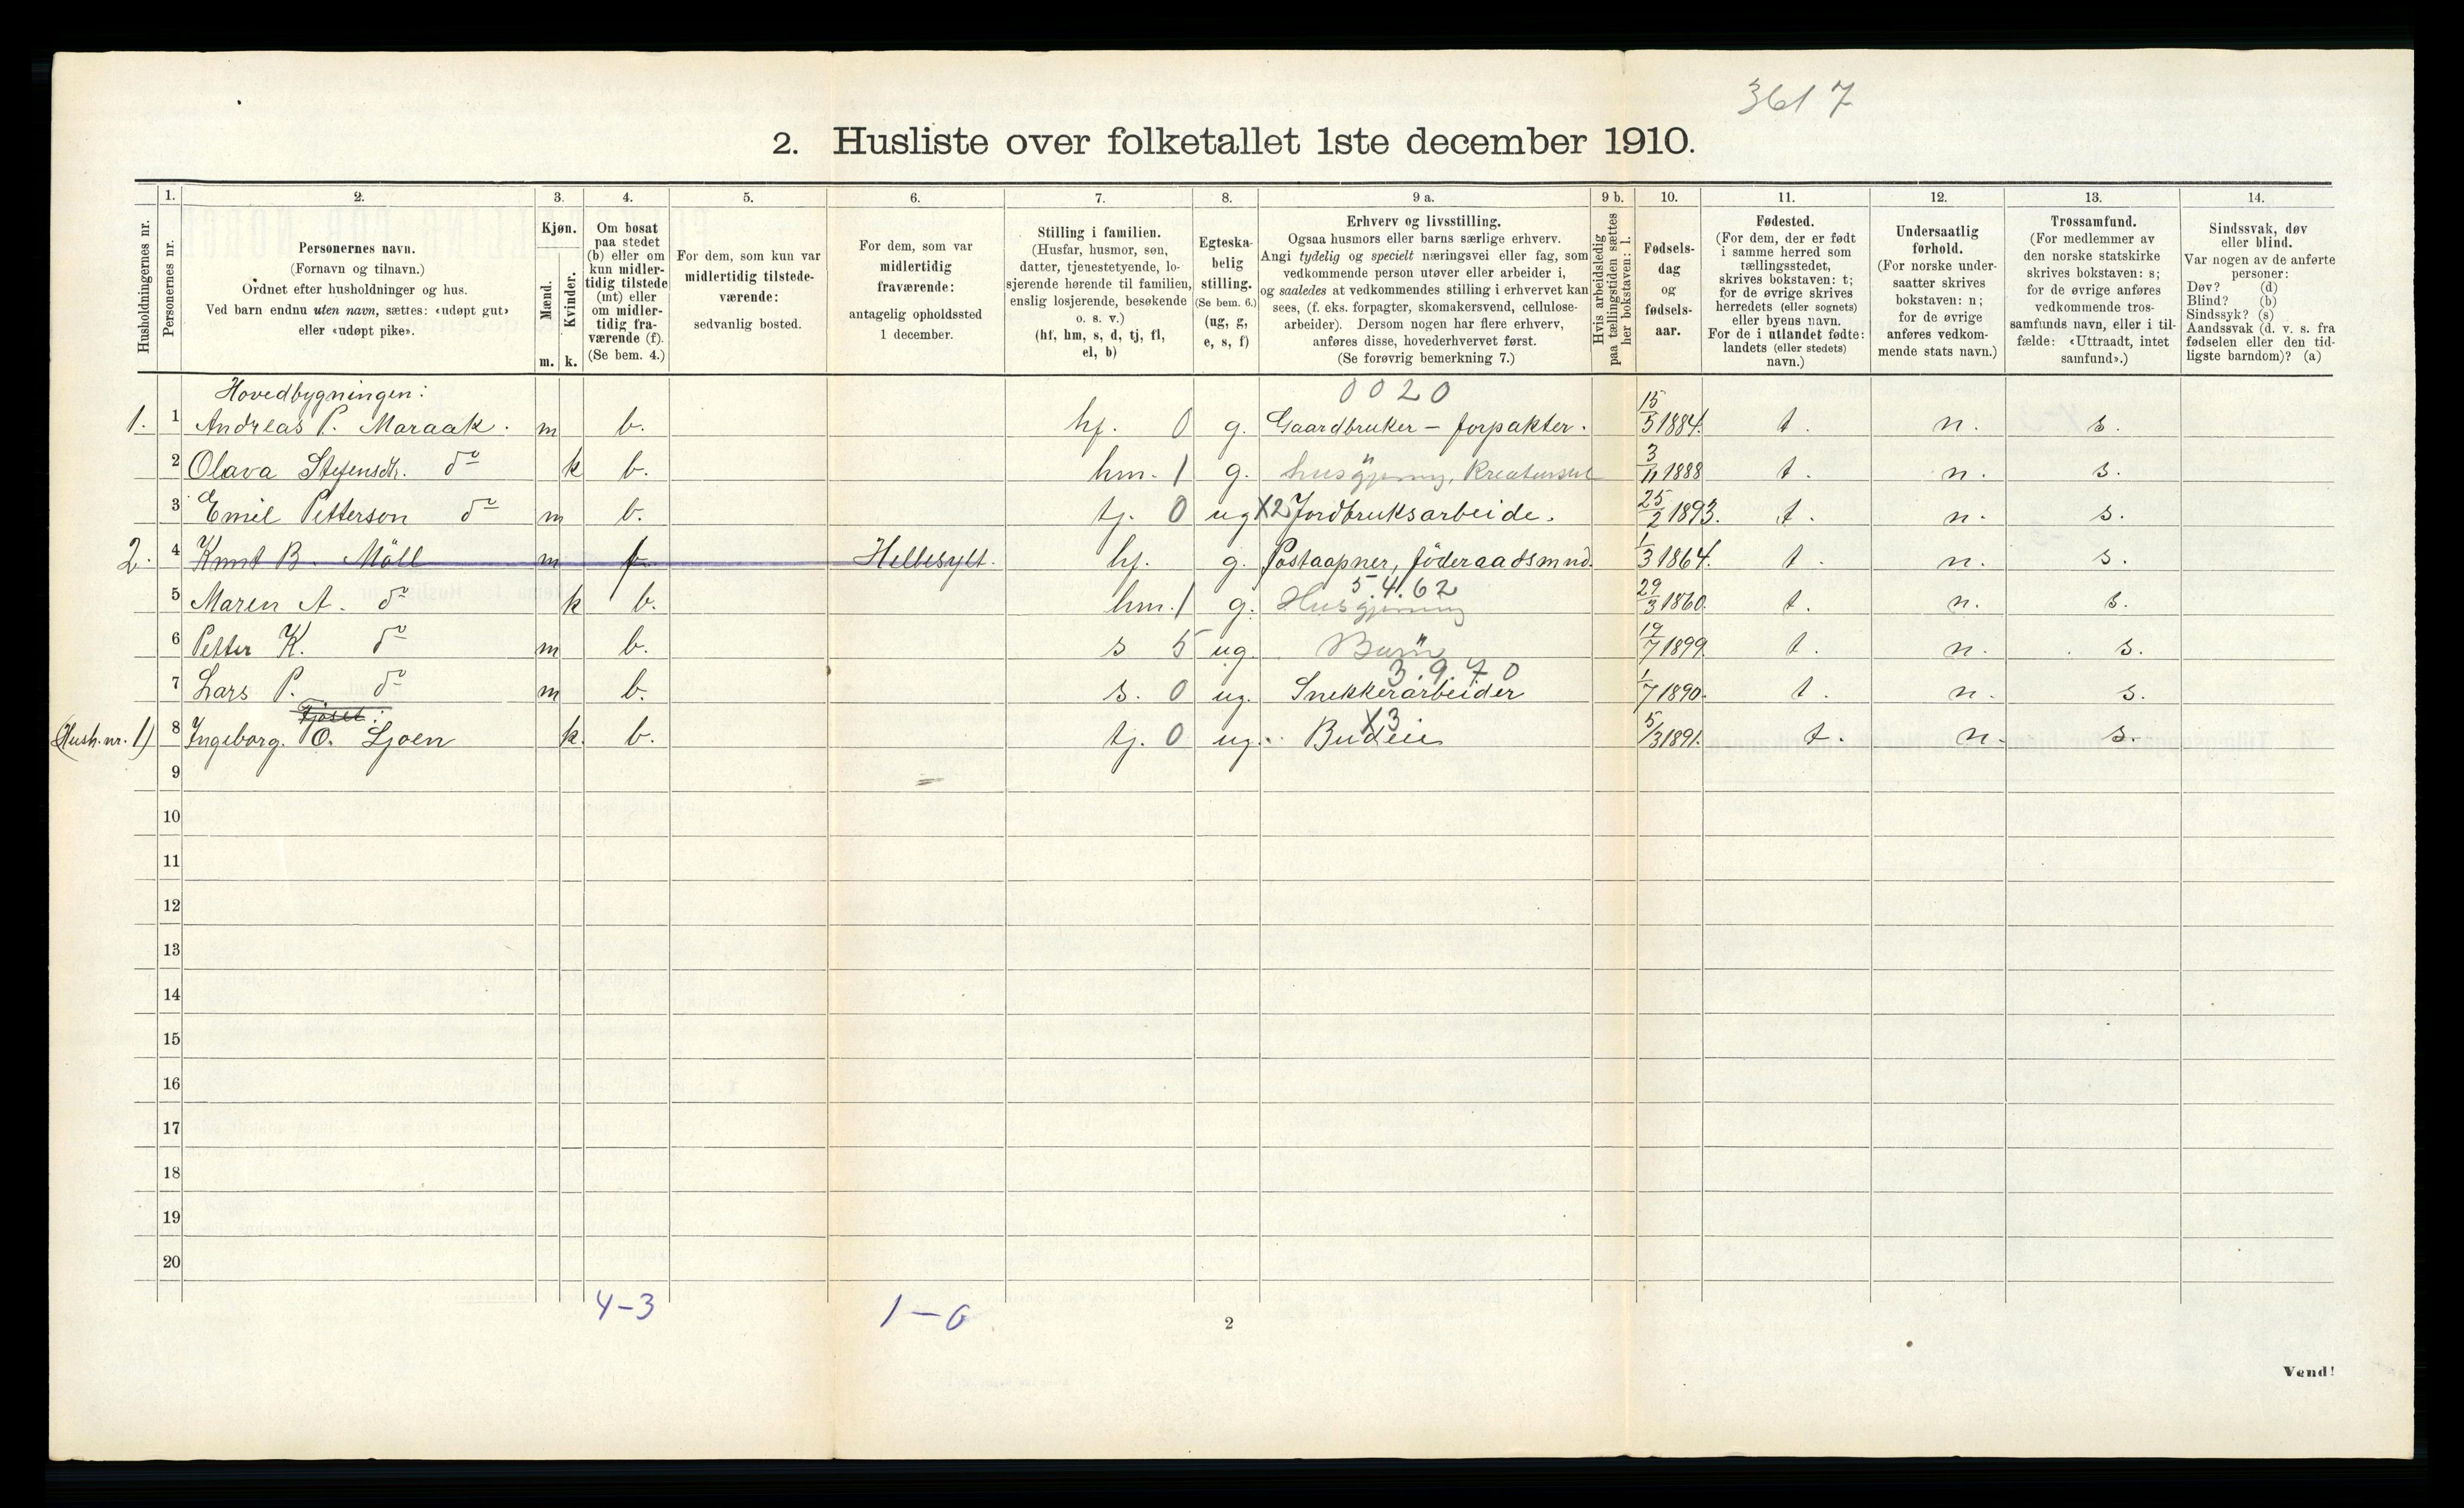 3617
2. Husliste over folketallet 1ste december 1910.
Husholdningernes nr.
1. Personernes nr.
2. Personernes navn.
(Fornavn og tilnavn.)
Ordnet efter husholdninger og hus.
Ved barn endnu uten navn, sættes: «udøpt gut»
eller «udøpt pike».
3. Kjøn.
Mænd. m.
Kvinder. k.
4. Om bosat
paa stedet
(b) eller om
kun midler-
tidig tilstede
(mt) eller
om midler-
tidig fra-
værende (f).
(Se bem. 4.)
5. For dem, som kun var
midlertidig tilstede-
værende:
sedvanlig bosted.
6. For dem, som var
midlertidig
fraværende:
antagelig opholdssted
1 december.
7. Stilling i familien.
(Husfar, husmor, søn,
datter, tjenestetyende, lo-
sjerende hørende til familien,
enslig losjerende, besøkende
o. s. v.)
(hf, hm, s, d, tj, fl,
el, b)
8. Egteska-
belig
stilling.
(Se bem. 6.)
(ug, g,
e, s, f)
9 a. Erhverv og livsstilling.
Ogsaa husmors eller barns særlige erhverv.
Angi tydelig og specielt næringsvei eller fag, som
vedkommende person utøver eller arbeider i,
og saaledes at vedkommendes stilling i erhvervet kan
sees, (f. eks. forpagter, skomakersvend, cellulose-
arbeider). Dersom nogen har flere erhverv,
anføres disse, hovederhvervet først.
(Se forøvrig bemerkning 7.)
9 b. Hvis arbeidsledig
paa tællingstiden sættes
her bokstaven: l.
10. Fødsels-
dag
og
fødsels-
aar.
11. Fødested.
(For dem, der er født
i samme herred som
tællingsstedet,
skrives bokstaven: t;
for de øvrige skrives
herredets (eller sognets)
eller byens navn.
For de i utlandet fødte:
landets (eller stedets)
navn.)
12. Undersaatlig
forhold.
(For norske under-
saatter skrives
bokstaven: n;
for de øvrige
anføres vedkom-
mende stats navn.)
13. Trossamfund.
(For medlemmer av
den norske statskirke
skrives bokstaven: s;
for de øvrige anføres
vedkommende tros-
samfunds navn, eller i til-
fælde: «Uttraadt, intet
samfund».)
14. Sindssvak, døv
eller blind.
Var nogen av de anførte
personer:
Døv? (d)
Blind? (b)
Sindssyk? (s)
Aandssvak (d. v. s. fra
fødselen eller den tid-
ligste barndom)? (a)
Hovedbygningen: 0020
1. 1 Andreas P. Maraak. m b. hf. 0 g. Gaardbruker - forpakter. 15/5 1884. t. n. s.
2 Olava Steffensdtr. do k b. hm. 1 g. husgjerning, Kreaturstel 3/11 1888 t. n. s.
3 Emil Petterson do m b. tj. 0 ug X2 Jordbruksarbeide. 25/2 1893. t. n. s.
2. 4 Knut B. Möll m f Hellesylt. hf. g. Postaapner, föderaadsmnd. 1/3 1864. t. n. s.
5.4.62
5 Maren A. do k b. hm. 1 g. Husgjerning 29/3 1860. t. n. s.
6 Petter K. do m b. s 5 ug. Barn 19/7 1899 t. n. s.
3.9.70
7 Lars P. do m b. s. 0 ug. Snekkerarbeider 1/7 1890. t. n. s.
Fjöset:
(Hush. nr. 1) 8 Ingeborg. O. Ljoen k. b. tj. 0 ug. X3 Budeie 5/3 1891. t. n. s.
9
10
11
12
13
14
15
16
17
18
19
20
4-3 1-0
2
Vend!